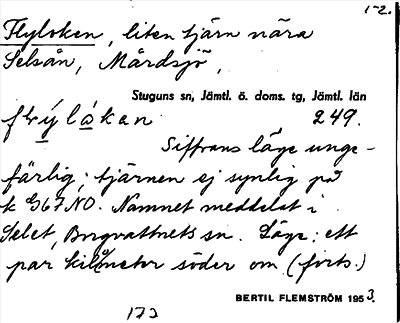 1-2.
Flyloken, liten tjärn nära
Selsån, Mårdsjö,
Stuguns sn, Jämtl. ö. doms. tg, Jämtl. län
flý lókan 249.
Siffrans läge unge-
färlig; tjärnen ej synlig på
k G67 NO. Namnet meddelat i
Selet, Borgvattnets sn. Läge: ett
par kilometer söder om (forts.)
BERTIL FLEMSTRÖM 1953.